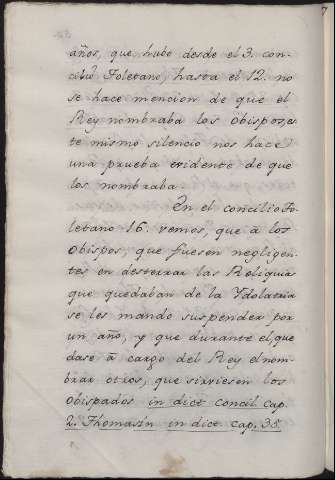 años, que hubo desde el 3. con-
cilio Toletano, hasta el 12. no
se hace mencion de que el
Rey nombraba los obispos, es-
te mismo silencio nos hace
una prueba evidente de que
los nombraba
En el concilio To-
letano 16. vemos, que à los
obispos, que fuesen negligen-
tes en desterrar las Reliquias
que quedaban de la Ydolatria
se les mando suspender por
un año, y que durante el, que
dase à cargo del Rey el nom-
brar otros, que sirviesen los
obispados in dice concil. cap.
2. Thomasin in dice cap. 35